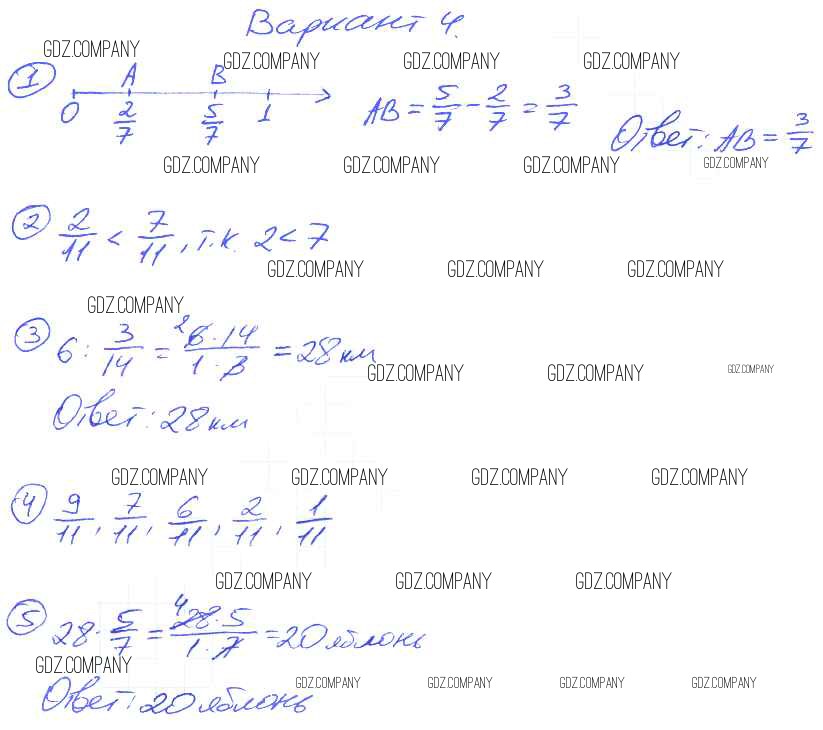 Вариант 4.
GDZ.COMPANY GDZ.COMPANY GDZ.COMPANY GDZ.COMPANY
1 A B
0 2/7 5/7 1 AB = 5/7 - 2/7 = 3/7
Ответ: AB = 3/7
GDZ.COMPANY GDZ.COMPANY GDZ.COMPANY GDZ.COMPANY
2 2/11 < 7/11, т.к. 2 < 7
GDZ.COMPANY GDZ.COMPANY GDZ.COMPANY
GDZ.COMPANY
3 6 : 3/14 = 2 6·14/1·3 = 28 км
GDZ.COMPANY GDZ.COMPANY GDZ.COMPANY
Ответ: 28 км
GDZ.COMPANY GDZ.COMPANY GDZ.COMPANY GDZ.COMPANY
4 9/11, 7/11, 6/11, 2/11, 1/11
GDZ.COMPANY GDZ.COMPANY GDZ.COMPANY
5 28 · 5/7 = 4 28·5/1·7 = 20 яблонь
GDZ.COMPANY
Ответ: 20 яблонь
GDZ.COMPANY GDZ.COMPANY GDZ.COMPANY GDZ.COMPANY